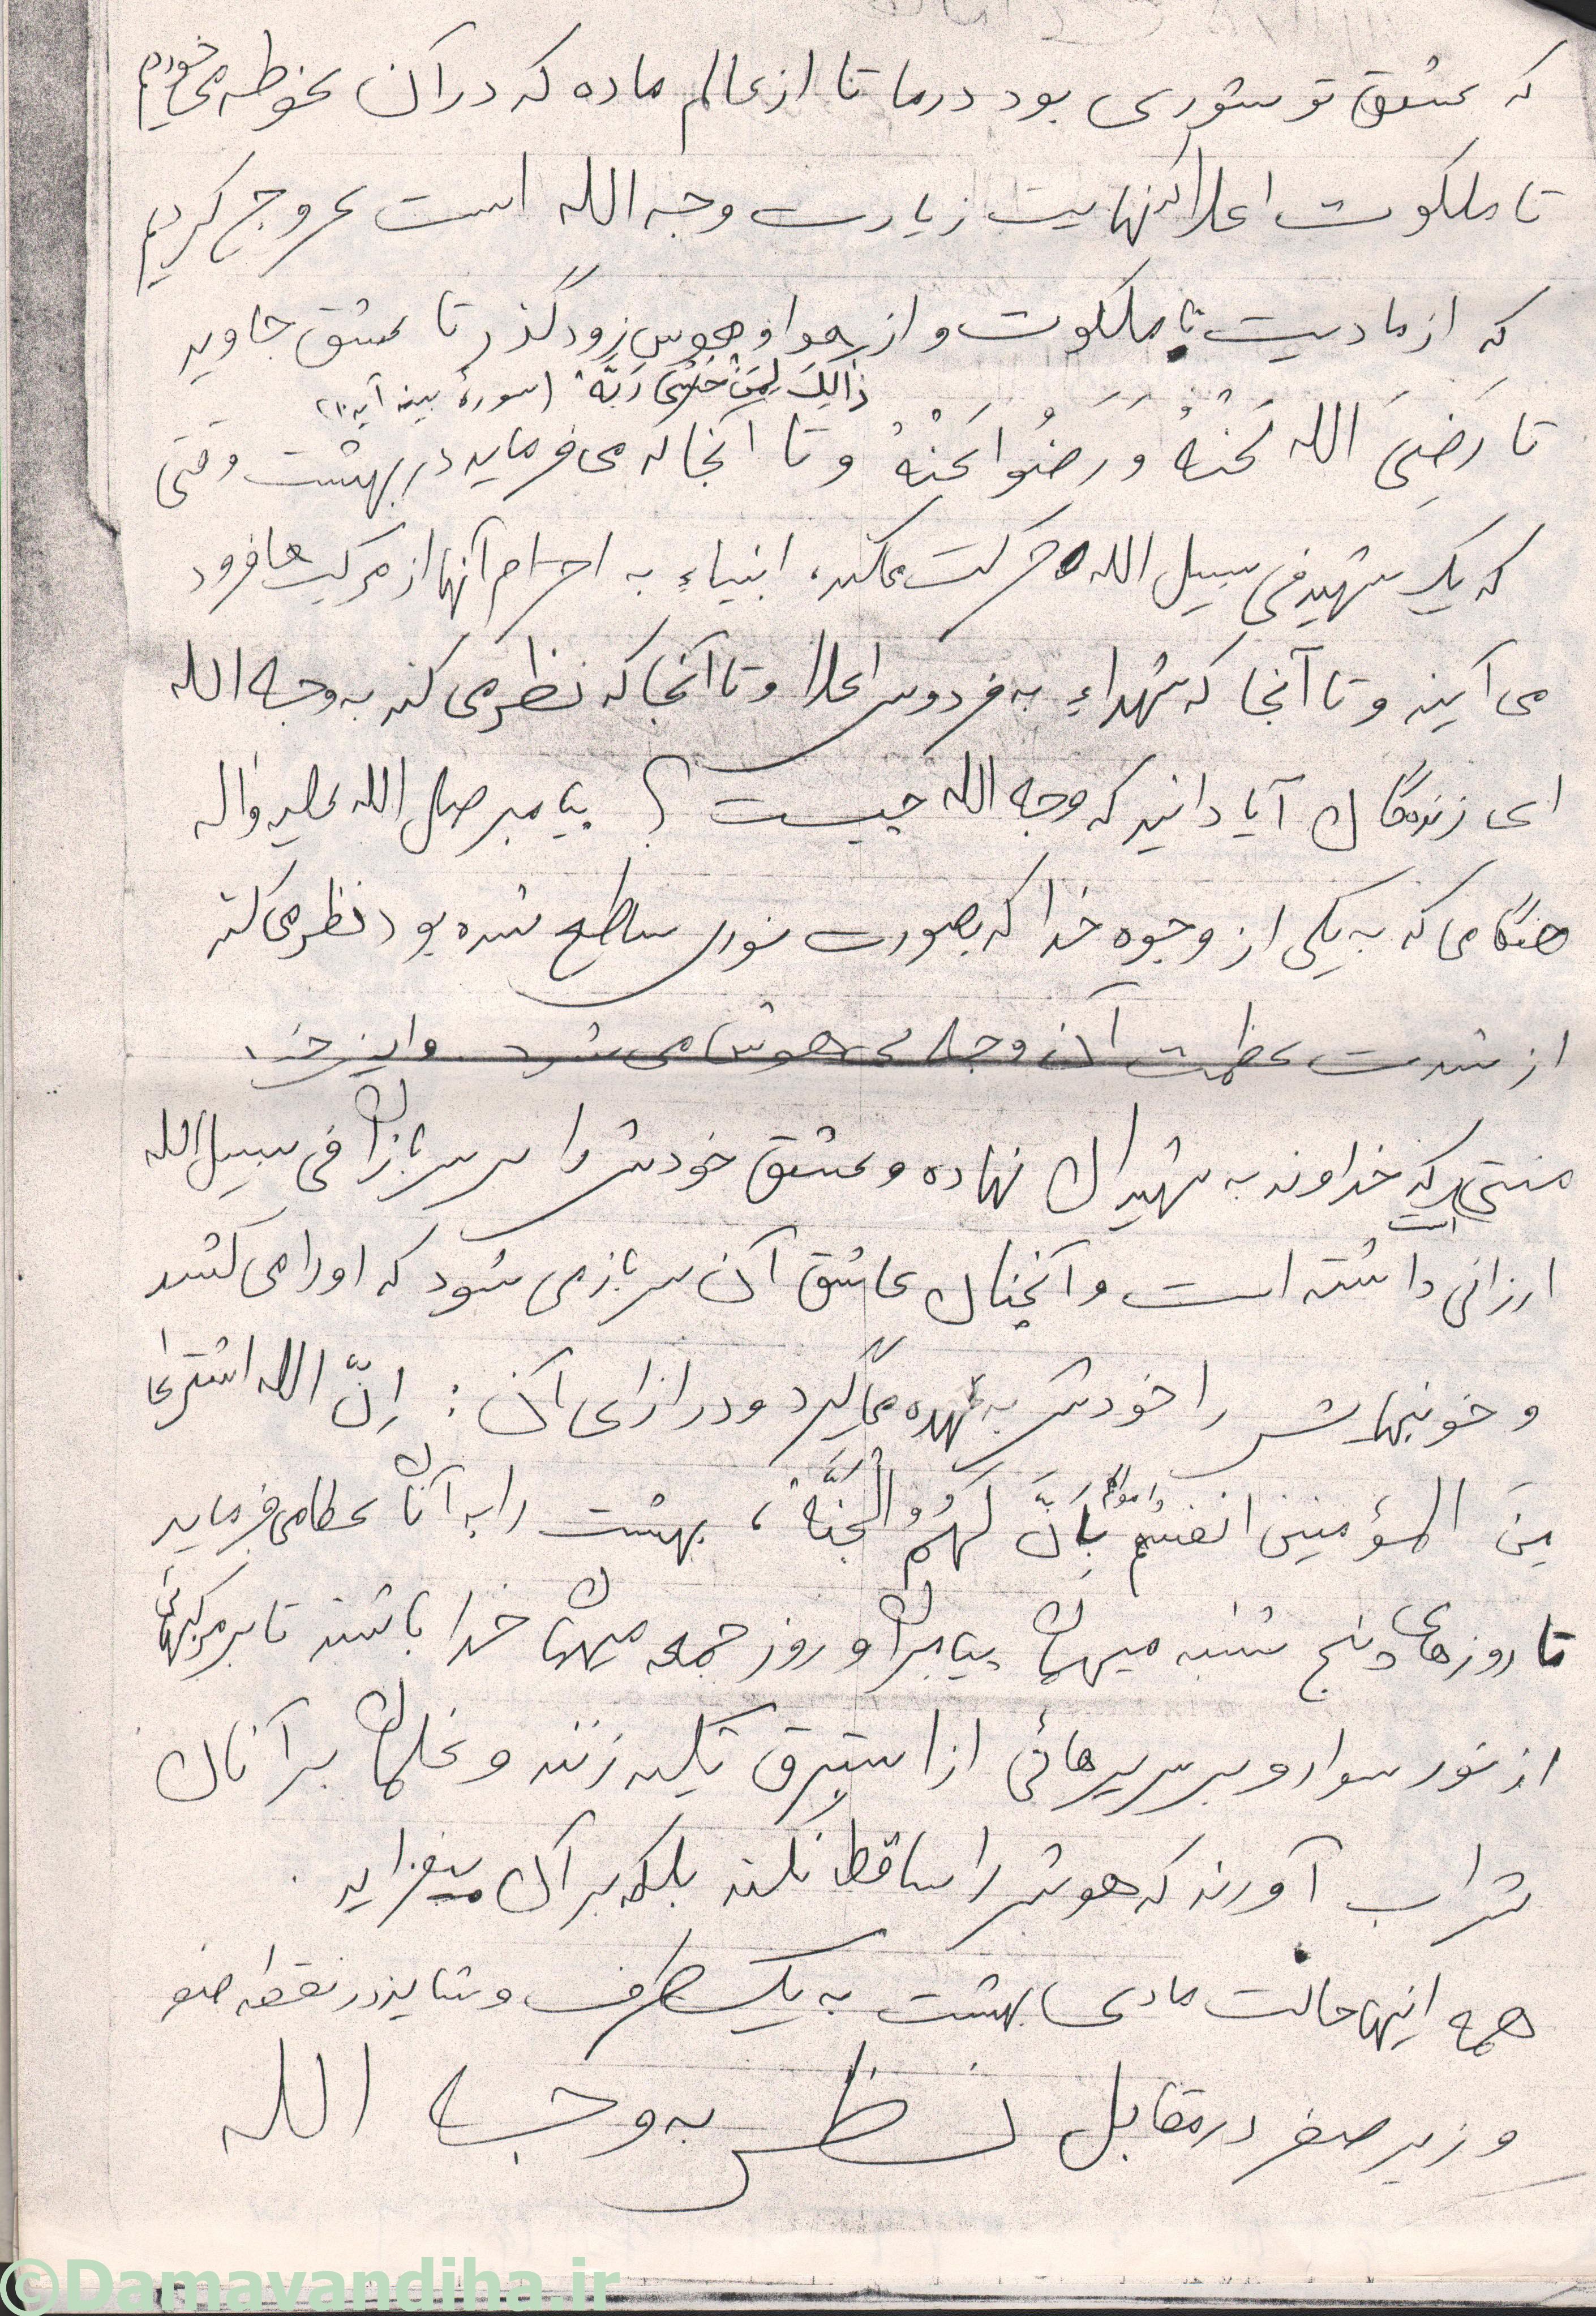 که عشق تو شوری بود در ما تا از عالم ماده که در آن غوطه می‌خوردیم
تا ملکوت اعلا که نهایت زیارت وجه الله است عروج کردیم
که از مادیت تا ملکوت و از هوا و هوس زودگذر تا عشق جاوید
ذٰالِکَ لِمَنْ خَشِیَ رَبَّهُ (سورهٔ بینه آیه
تا رَضِیَ الله عَنْهُمْ وَ رَضُوا عَنْهُ و تا آنجا که می فرماید در بهشت وقتی
که یک شهید فی سبیل الله حرکت میکند، انبیاء به احترام آنها از مرکب ها فرود
می آیند و تا آنجا که شهداء به فردوس اعلا و تا آنجا که نظر می کند به وجه الله
ای زندگان آیا دانید که وجه الله چیست ؟ پیامبر صلی الله علیه واله
هنگامی که به یکی از وجوه خدا که بصورت نوری ساطع شده بود نظر می کند
از شدت عظمت آن وجه بی هوش می شود. و این خود
منتی است که خداوند به شهیدان نهاده و عشق خودش را بر سربازان فی سبیل الله
ارزانی داشته است و آنچنان عاشق آن سرباز می شود که او را می کشد
و خونبهایش را خودش به عهده میگیرد و در ازای آن : اِنّ الله اشتری
مِنَ المؤمنین انفسهم و اموالهم بِاَنَّ لَهُمُ الْجَنَّةَ، بهشت را به آنان عطا می فرماید
تا روزهای پنج شنبه میهمان پیامبران و روز جمعه میهمان خدا باشند تا بر مرکبهائی
از نور سوار و بر سریرهائی از استبرق تکیه زنند و غلمان بر آنان
شراب آورند که هوش را ساقط نکند بلکه بر آن میفزاید .
همه اینها حالت مادی بهشت به یک طرف و شاید در نقطه صفر
و زیر صفر در مقابل نظر به وجه الله
©Damavandiha.ir